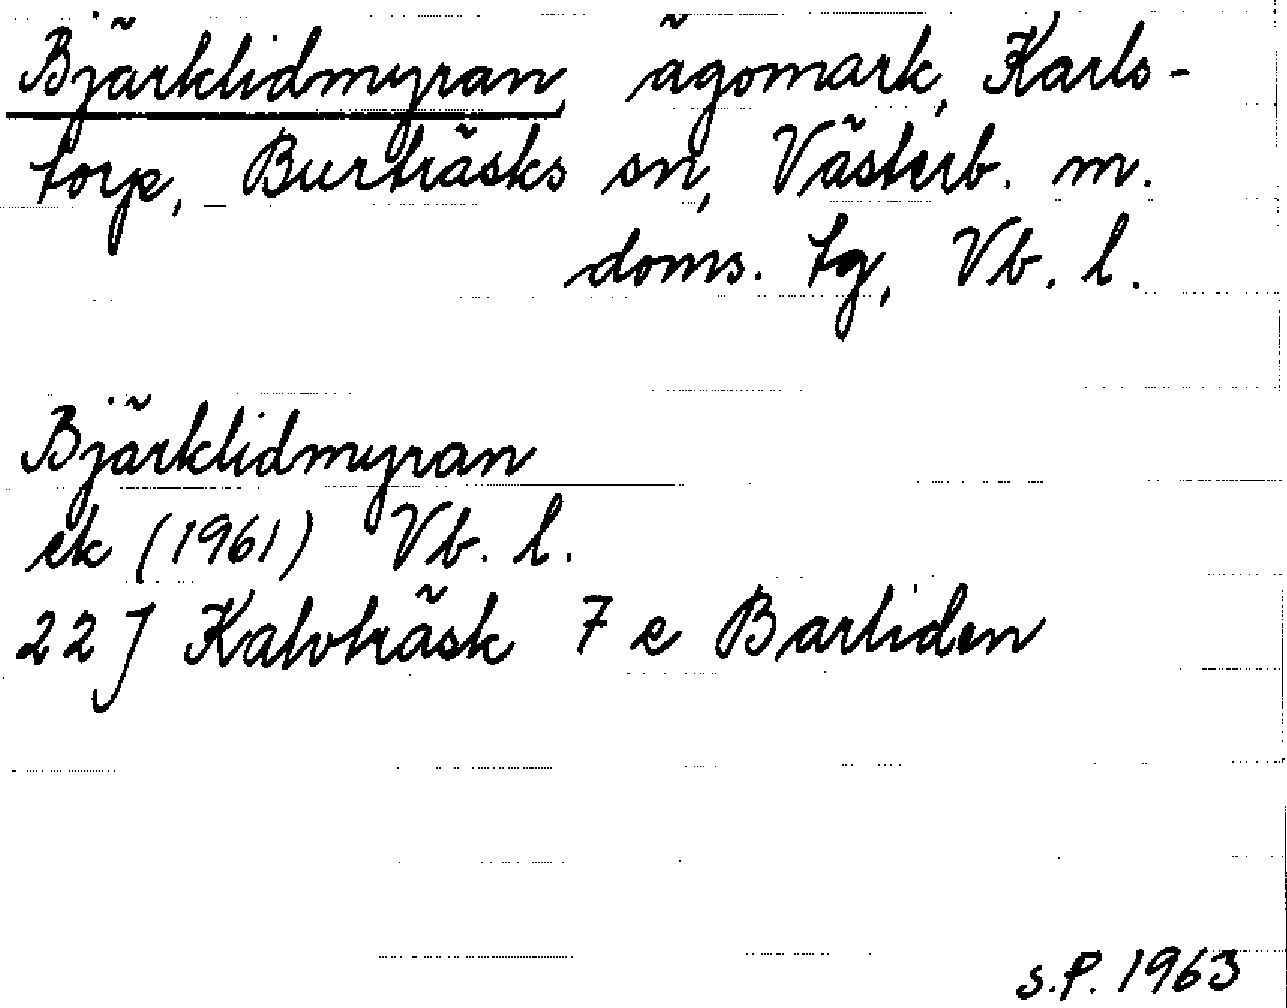 Bjärklidmyran, ägomark, Karls-
torp, Burträsks sn, Västerb. m.
doms. tg, Vb. l.
Bjärklidmyran
ek (1961) Vb. l.
22 J Kalvträsk 7 e Barliden
S.P. 1963